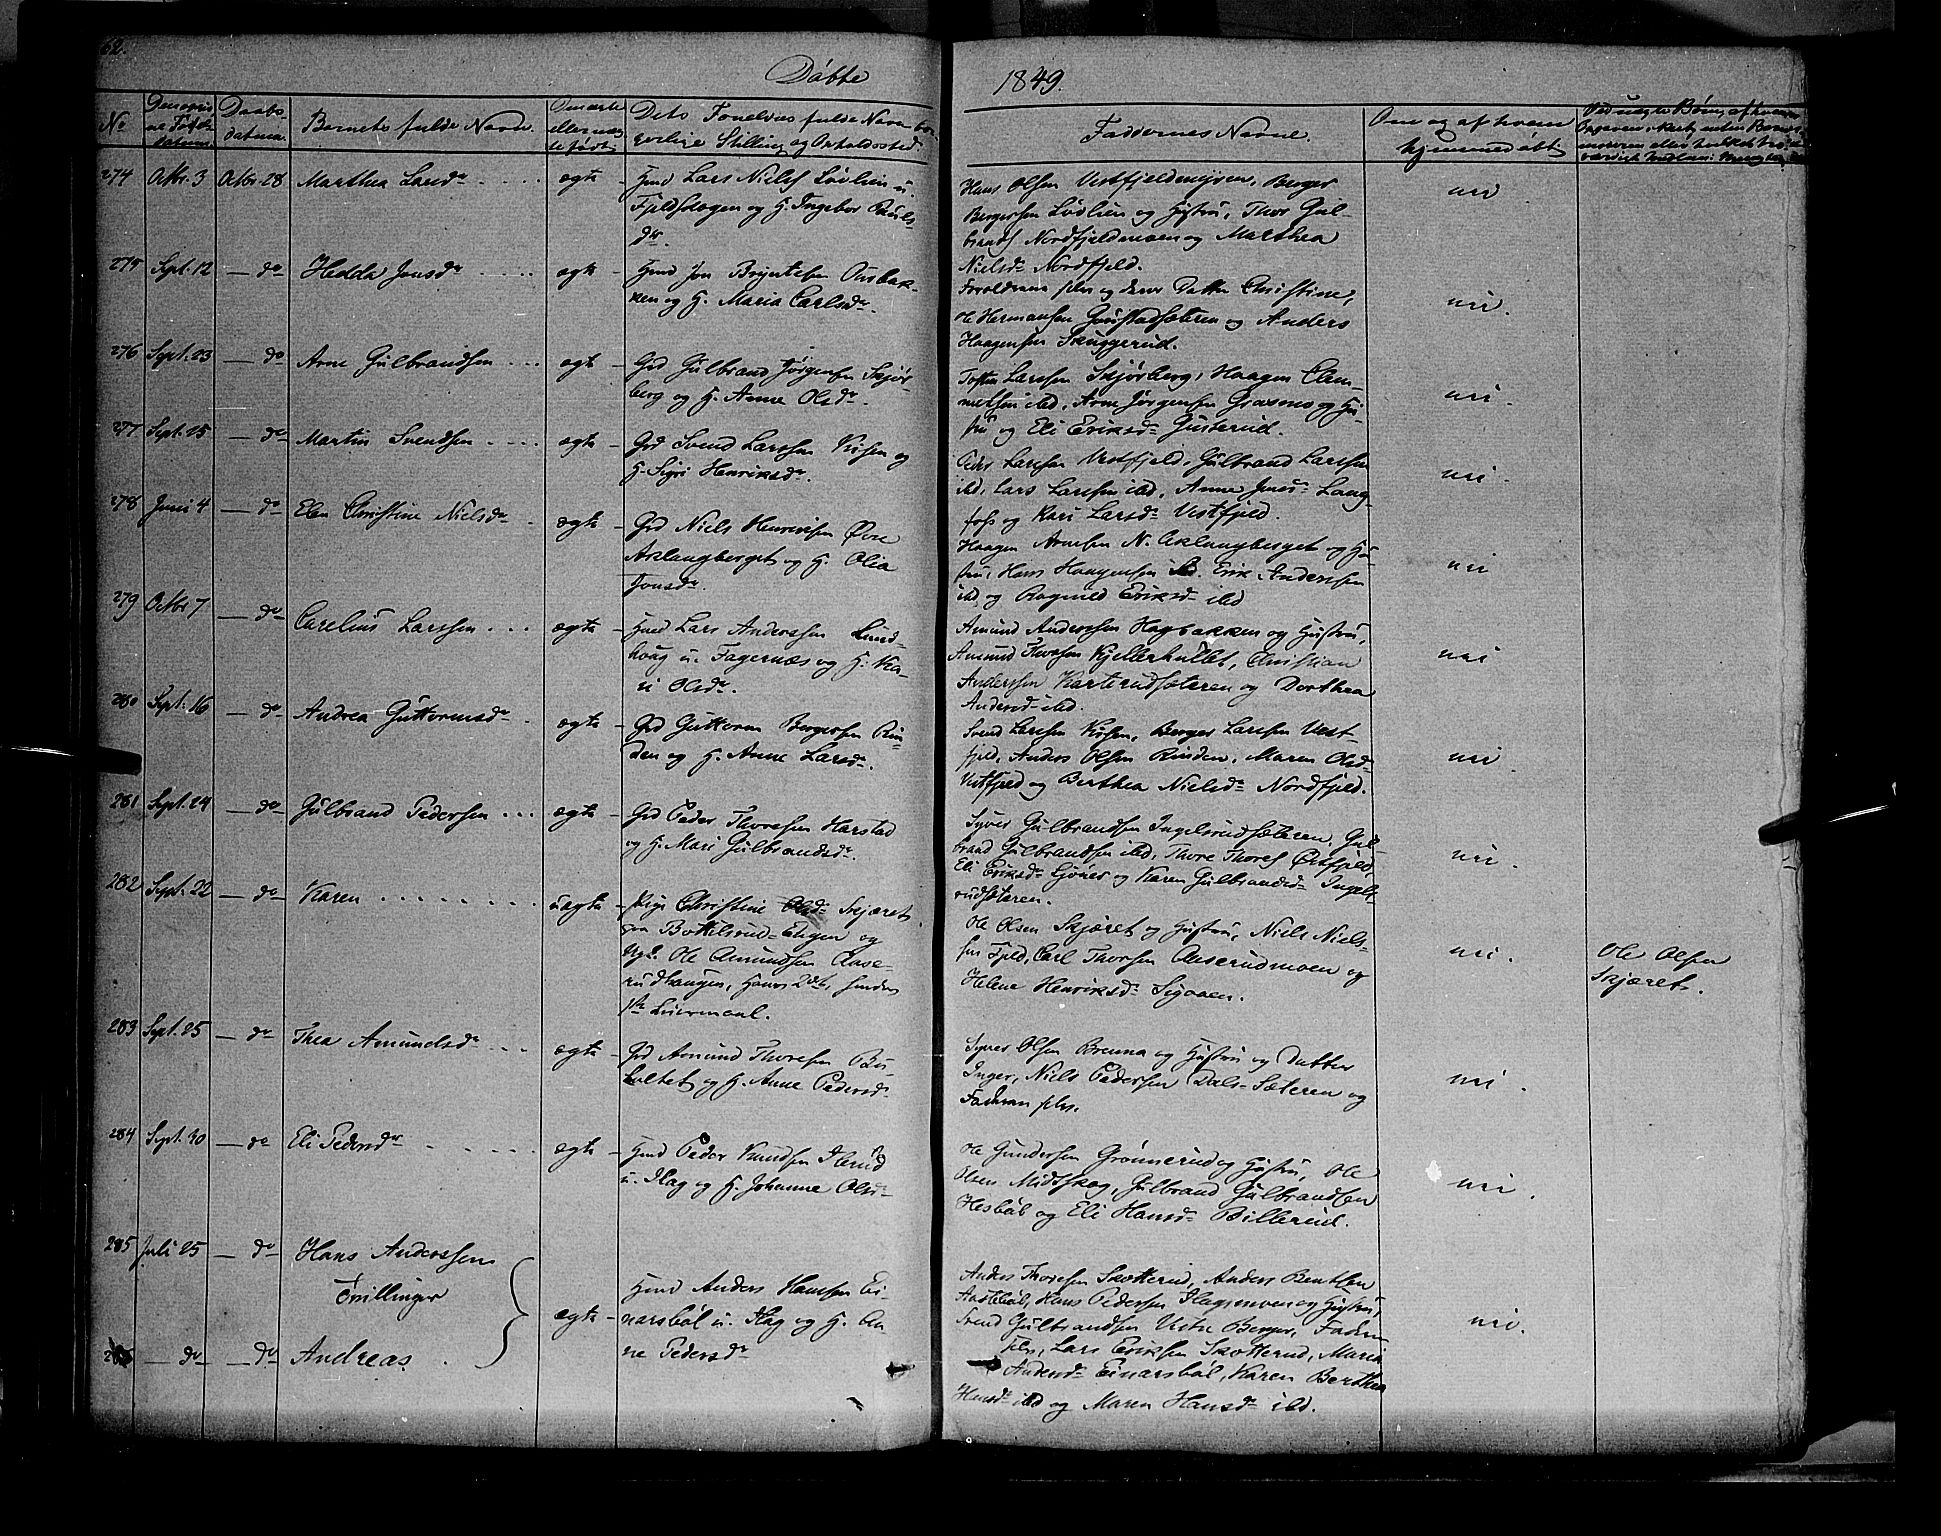 62.
Döbte
1849.
No
Daabs
datum
Barnets fulde Navn.
Faddernes Navne.
Om og af hvem
hjemmedøbt
274 Octbr. 3 Octbr 28 Marthea Larsdr ægte
Hmd Lars Niels Lövlien u.
Fjeldskogen og H. Ingebor
dr.
Hans Olsen Vestfjeldmyren, Berger
Bergersen Lövlien og Hustru, Thor Gul-
brands Nordfjeldmoen og Marthea
Nielsdr Nordfjeld.
nei
275 Sept. 12 — do Hedda Jonsdr ægte
Hmd Jon Bryntesen
ken og H. Maria Carlsdr.
Forældrene selv og deres Datter Christine,
Ole Hermansen Gunstadsæteren og Anders
Haagensen Skuggerud.
nei.
276 Sept. 23 — do Arne Gulbrandsen ægte
Grd Gulbrand Jørgensen Skjør-
berg og H. Anne Olsdr.
Tosten Larssen Skjørberg, Haagen Clem-
metsen ibd, Arne Jørgensen Grasmo og Hu-
stru og Eli Eriksdr Gusterud.
nei.
277 Sept. 25 — do Martin Svendsen ægte
Grd Svend Larssen Kisen og
H. Sigri Henriksdr.
Peder Larssen Vestfjeld, Gulbrand Larssen
ibd, Lars Larssen ibd, Anne Jensdr Lang-
foss og Kari Larsdr Vestfjeld.
nei.
278 Juni 4 — do Elen Christine Nielsdr ægte
Grd Niels Henriksen Øvre
Aklangberget og H. Olia
Jonsdr.
Haagen Arnesen N. Aklangberget og Hu-
stru, Hans Haagensen ibd. Erik Anderssen
ibd og Ragnild Eriksdr ibd
nei
279 Octbr 7 — do Carelius Larssen ægte
Hmd Lars Anderssen Lund-
houg u. Fagernæs og H. Ka-
ri Olsdr.
Amund Anderssen Hagbakken og Hustru,
Amund Thoresen Kjellerhullet, Christian
Anderssen Karterudsæteren og Dorthea
Andersdr ibd.
nei
280 Sept. 16 — do Andrea Guttormsdr ægte
Grd Guttorm Bergersen Rin-
den og H. Anne Larsdr.
Svend Larssen Kisen, Berger Larssen Vest
fjeld, Anders Olsen Rinden, Maren Olsdr
Vestfjeld og Berthea Nielsdr Nordfjeld.
nei.
281 Sept. 24 — do Gulbrand Pedersen ægte
Grd Peder Thoresen Harstad
og H. Mari Gulbrandsdr.
Syver Gulbrandsen Ingelsrudsæteren, Gul-
brand Gulbrandsen ibd, Thore Thores Østfjeld,
Eli Eriksdr Sjöner og Karen Gulbrandsdr Ingels-
rudsæteren.
nei.
282 Sept. 22 — do Karen uægte
Pige Christine Olsdr Skjæret
paa Bottelsrud-Engen og
Ugk. Ole Amundsen Aase-
rudhaugen, Hans 2det, hendes
1ste Leiermaal.
Ole Olsen Skjæret og Hustru, Niels Niels-
sen Fjeld, Carl Thorsen Aaserudmoen og
Helene Henriksdr Sigaaen.
nei.
Ole Olsen
Skjæret.
283 Sept. 25 — do Thea Amundsdr ægte
Grd Amund Thoresen Bu-
holtet og H. Anne Pedersdr
Syver Olsen Brenna og Hustru og Datter
Inger, Niels Pedersen Dals-Sæteren og
Faderen selv.
nei.
284 Sept. 30 — do Eli Pedersdr ægte
Hmd Peder Knudsen Ilerud
u. Hag og H. Johanne Olsdr
Ole Gundersen Grønnerud og Hustru, Ole
Olsen Midtskog, Gulbrand Gulbrandsen
Hesböl og Eli Hansdr Billerud.
nei.
285 Juli 25 — do Hans Anderssen
Tvillinger
286 — do — do Andreas.
ægte
Hmd Anders Hansen Ei-
narsböl u. Hag og H. An-
ne Pedersdr
Anders Thoresen Skotterud, Anders Bentsen
Aasteböl, Hans Pedersen Hagsmoen og Hustru,
Svend Gulbrandsen Vetre Berger, Faderen
selv, Lars Eriksen Skotterud, Maria
Andersdr Einarsböl, Karen Berthea
Hansdr ibd og Maren Hansdr ibd.
nei.